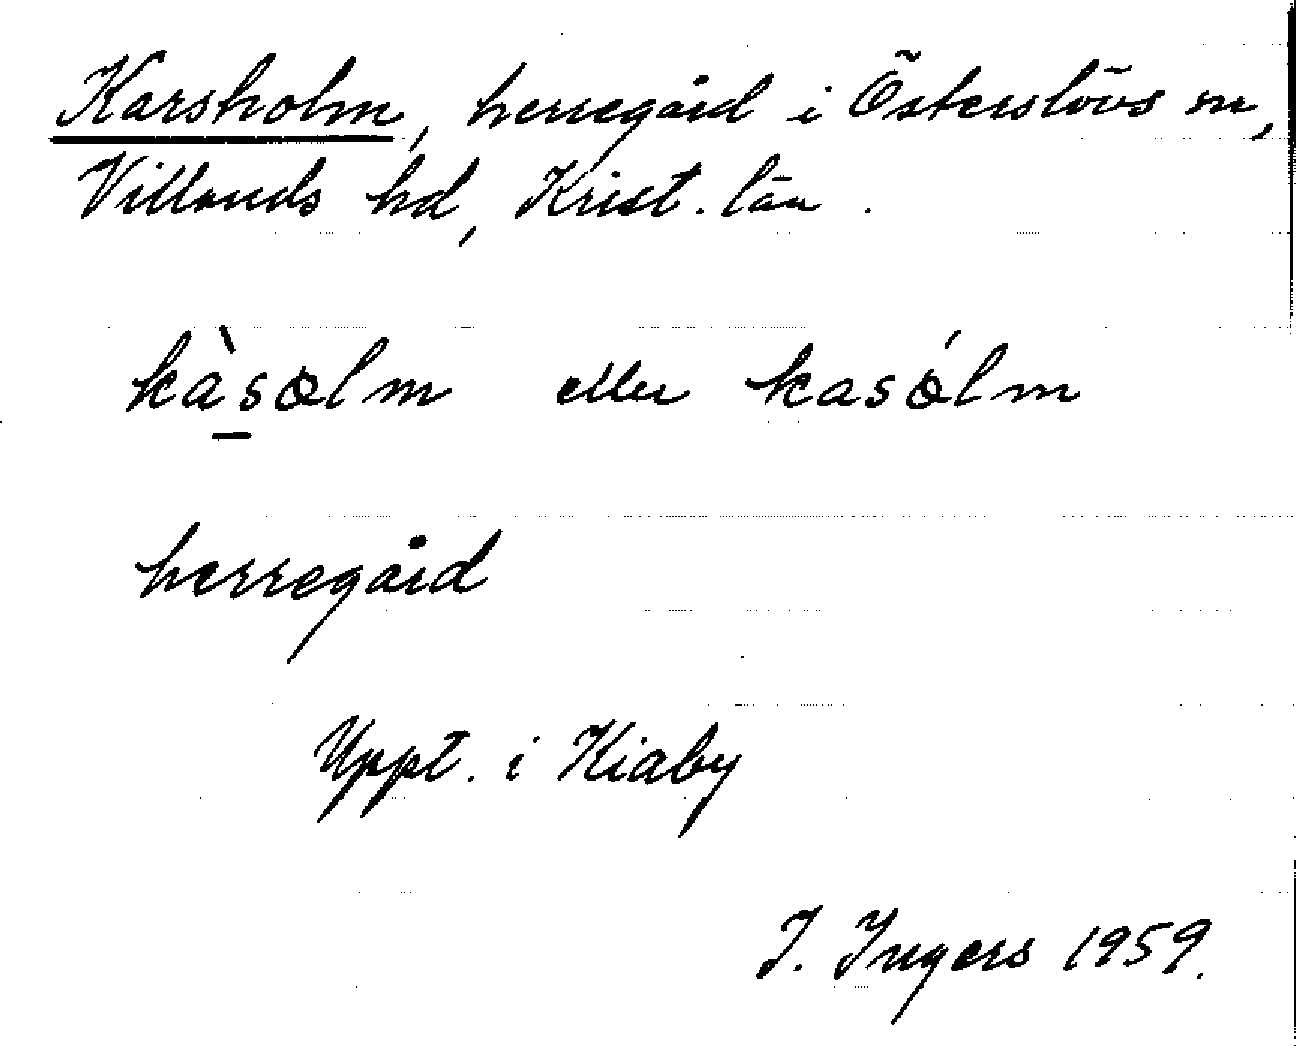 Karsholm, herregård i Österslövs sn,
Villands hd, Krist. län.
kàsɷlm eller kasɷ́lm
herregård
Uppt. i Kiaby
I. Ingers 1959.